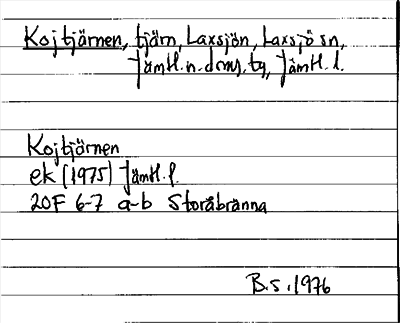 Kojtjärnen, tjärn, Laxsjön, Laxsjö sn,
Jämtl. n. dms. tg, Jämtl. l.
Kojtjärnen
ek (1975) Jämtl. l.
20F 6-7 a-b Storåbränna
B.S. 1976